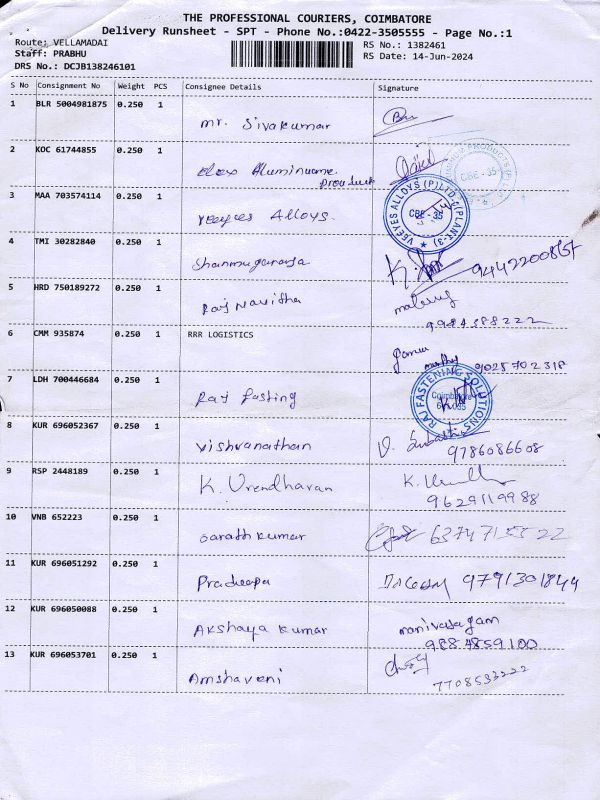 THE PROFESSIONAL COURIERS, COIMBATORE
Delivery Runsheet - SPT - Phone No.:0422-3505555 - Page No.:1
Route: VELLAMADAI
Staff: PRABHU
DRS No.: DCJB138246101
RS No.: 1382461
RS Date: 14-Jun-2024
S No Consignment No Weight PCS Consignee Details Signature
1 BLR 5004981875 0.250 1 mr. Sivakumar
2 KOC 61744855 0.250 1 Aluminume
CBE - 35
3 MAA 703574114 0.250 1 veeyes Alloys.
VEEYES ALLOYS (P) LTD-C(PLANT-3)
CBE - 35
4 TMI 30282840 0.250 1 Shanmugaraja 9442200867
5 HRD 750189272 0.250 1 Raj Navitha
6 CMM 935874 0.250 1 RRR LOGISTICS
9025702318
7 LDH 700446684 0.250 1 Raj fasting
RAJ FASTENING SOLUTIONS
Coimbatore
8 KUR 696052367 0.250 1 vishvanathan
9786086608
9 RSP 2448189 0.250 1 K. Urendharan K.
9629119988
10 VNB 652223 0.250 1 Sarath kumar
11 KUR 696051292 0.250 1 Pradeepa 9791301844
12 KUR 696050088 0.250 1 Akshaya kumar manivasagam
9884859100
13 KUR 696053701 0.250 1 Amshaveni
7708533222